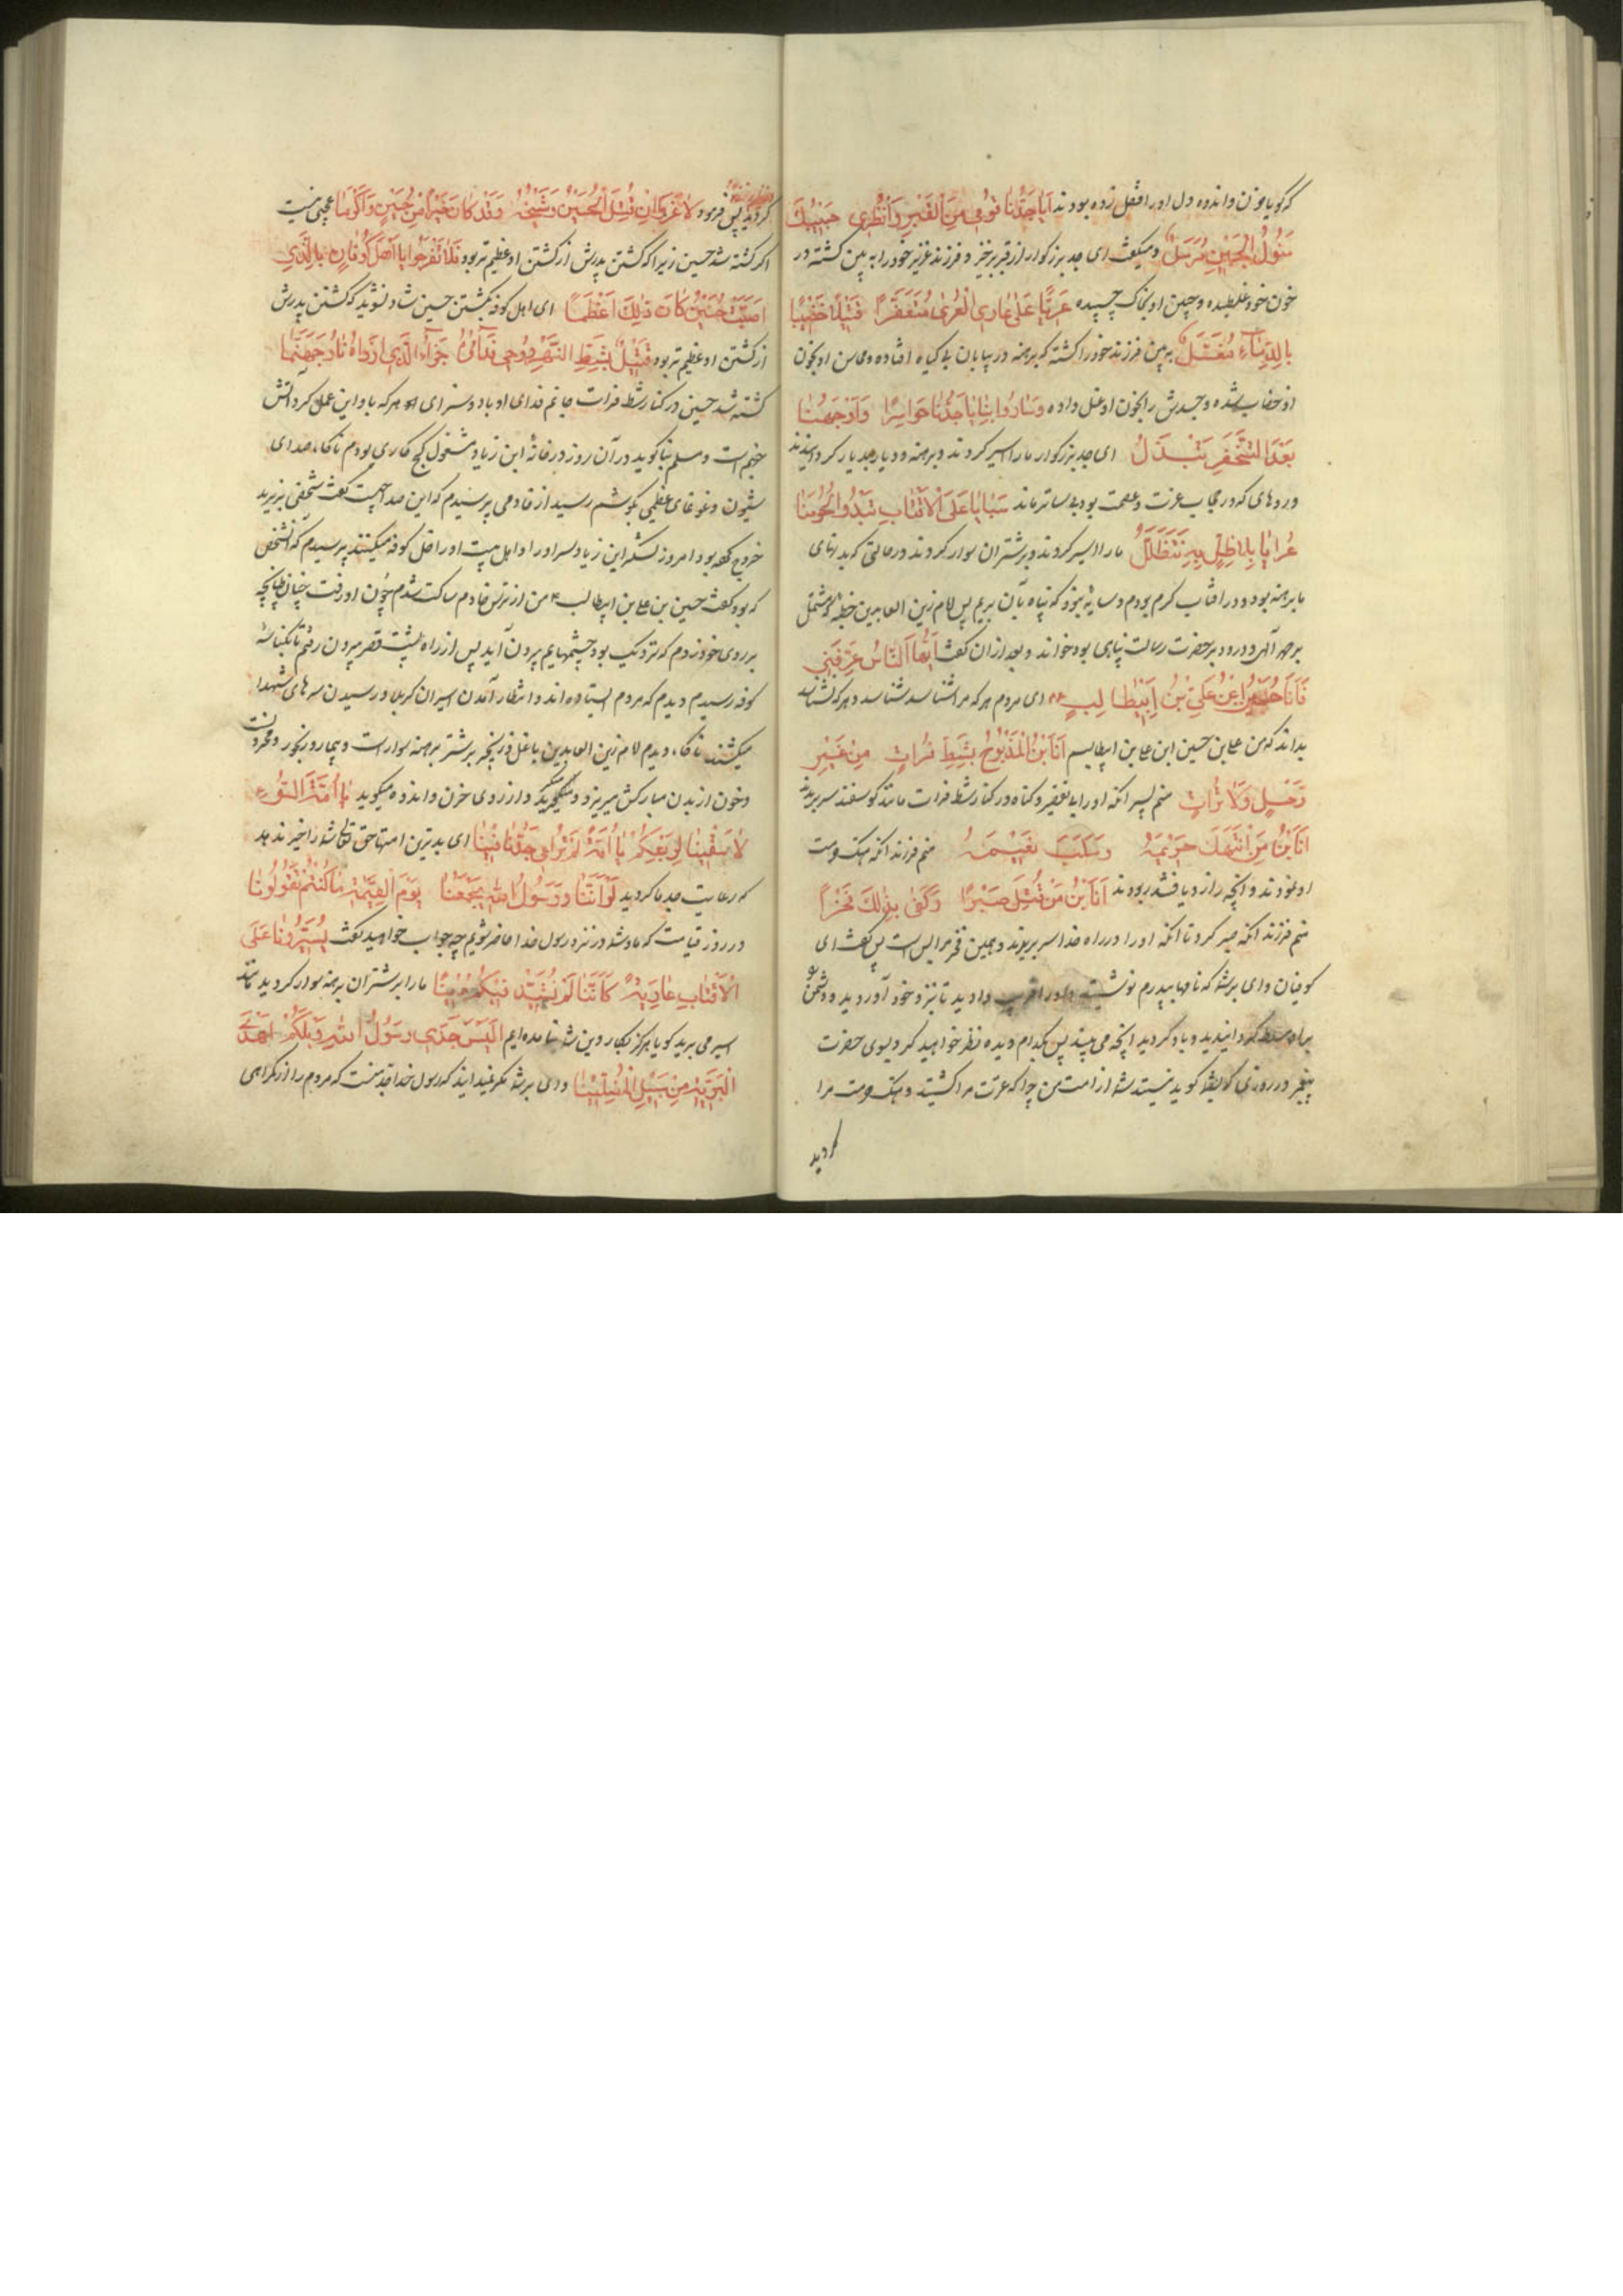 که گویا حزن و اندوه دل او را قفل زده بودند اَیا جَدَّنا قُومی مِنَ القَبْرِ وَانْظُری حَبیبَكَ
الجَبینِ مُرَمَّل و میگفت ای جد بزرگوار از قبر برخیز و فرزند عزیز خود را به بین کشته در
خون خود غلطیده و جبین او بخاک چسپیده عَلی عاری العُری مُتَعَفِّرًا قَتیلًا خَضیبًا
بِالدِّماءِ مُغَسَّل به بین فرزند خود را کشته که برهنه در بیابان بی گیاه افتاده و محاسن او بخون
او خضاب شده و جسدش را بخون او غسل داده وَسارُوا بِنا یا جَدَّنا حَواسِرًا وَاَوْجَهُنا
بَعْدَ التَّخَفُّرِ تَبْدَلُ ای جد بزرگوار ما را اسیر کردند و برهنه و دیار بدیار گردانیدند
و روهای که در حجاب عزت و عصمت بود بی ساتر ماند سَبایا عَلَی الاَقْتابِ تَبْدُو لُحُومُنا
عُرایا بِلا ظِلٍّ بِهِ نَتَظَلَّلُ ما را اسیر کردند و بر شتران سوار کردند در حالتی که بدنهای
ما برهنه بود و در افتاب گرم بودم و سایه نبود که پناه بآن بریم پس امام زین العابدین خطبه که مشتمل
بر حمد آلهی و درود بر حضرت رسالت پناهی بود خواند و بعد از ان گفت اَیُّهَا النّاسُ عَرَفَنی
فَاَنَا عَلِیُّ بْنِ اَبیطالِبٍ ای مردم هر که مرا شناسد شناسد و هر که نشناسد
بداند که من علی بن حسین ابن علی بن ابیطالبم اَنَا ابْنُ المَذْبُوحِ بِشَطِّ فُراتٍ مِنْ غَیْرِ
دَخَلٍ وَلا تُراتٍ منم پسر انکه او را بی تقصیر و گناه در کنار شط فرات مانند گوسفند سر بریدند
اَنَا ابْنُ مَنِ انْتَهَكَ حَریمَهُ وَسُلِبَ نَعیمَهُ منم فرزند انکه هتک حرمت
او نمودند و انچه را از او یافتند ربودند اَنَا ابْنُ مَنْ قُتِلَ صَبْرًا وَكَفی بِذلِكَ فَخْرًا
منم فرزند انکه صبر کرد تا انکه او را در راه خدا سر بریدند و همین فخر مرا بس است پس گفت ای
کوفیان وای بر شما که نامها بپدرم نوشتید و او را فریب دادید تا نزد خود آوردید و دشمن
برا و مسلط گردانیدید و باو کردید انچه می بیند پس بکدام دیده نظر خواهید کرد بسوی حضرت
پیغمبر در روزی که بشما گوید نیستند شما از امت من چرا که عترت مرا کشتید و هتک حرمت مرا
کردید
کردید پس فرمود لا غَرْوَ اِنْ قُتِلَ الحُسَیْنُ وَشَیْخُهُ وَقَدْ كانَ خَیْرًا مِنْ حُسَیْنٍ وَاَكْرَما عجبی نیست
اگر کشته شد حسین زیرا که کشتن پدرش از کشتن او عظیم تر بود فَلا تَفْرَحُوا یا اَهْلَ كُوفانٍ بِالَّذی
اُصیبَ حُسَیْنٌ كانَ ذلِكَ اَعْظَما ای اهل کوفه بکشتن حسین شاد نشوید که کشتن پدرش
از کشتن او عظیم تر بود قَتیلٌ بِشَطِّ النَّهْرِ رُوحی فِداؤُهُ جَزاءُ الَّذی اَرْداهُ نارُ جَهَنَّما
کشته شد حسین در کنار شط فرات جانم فدای او باد و سزای هر که باو این عمل کرد آتش
جهنم است و مسلم بنا گوید در آن روز در خانه ابن زیاد مشغول گچ کاری بودم ناگاه صدای
شیون و غوغای عظیمی بگوشم رسید از خادمی پرسیدم که این صدا چیست گفت شخصی بر یزید
خروج کرده بود امروز لشکر ابن زیاد سر او را و اهل بیت او را داخل کوفه میکنند پرسیدم که آنشخص
که بود گفت حسین بن علی بن ابیطالب ۴ من از ترس خادم ساکت شدم چون او رفت چنان طپانچه
بر روی خود زدم که نزدیک بود چشمهایم بیرون آید پس از راه پشت قصر بیرون رفتم تا بکناسه
کوفه رسیدم دیدم که مردم ایستاده اند و انتظار آمدن اسیران کربلا و رسیدن سرهای شهدا
میکشند ناگاه دیدم امام زین العابدین با غل و زنجیر بر شتر برهنه سوار است و بیمار و رنجور و مجروحست
و خون از بدن مبارکش میریزد و میگرید و از روی حزن و اندوه میگوید یا اُمَّةَ السُّوءِ
لا سَقْیًا لِرَبْعِكُمْ یا اُمَّةً لَمْ تُراعی جَدَّنا فینا ای بدترین امتها حق تعالی شما را خیر ندهد
که رعایت جد ما کردید لَوْ اَنَّنا وَرَسُولُ اللّهِ یَجْمَعُنا یَوْمَ القِیمَةِ ما كُنْتُمْ تَقُولُونا
در روز قیامت که ما و شما در نزد رسول خدا حاضر شویم چه جواب خواهید گفت تُسَیِّرُونا عَلَی
الاَقْتابِ عارِیَةً كَاَنَّنا لَمْ نُشَیِّدْ فیكُمْ دینًا ما را بر شتران برهنه سوار کردید مانند
اسیر می برید گویا هرگز بکار دین شما نیامده ایم اَلَیْسَ جَدّی رَسُولُ اللّهِ وَیْلَكُمْ اَهْدی
البَرِیَّةِ مِنْ سَبیلِ المُضِلّینا وای بر شما مگر نمیدانید که رسول خدا جد منست که مردم را از گمراهی